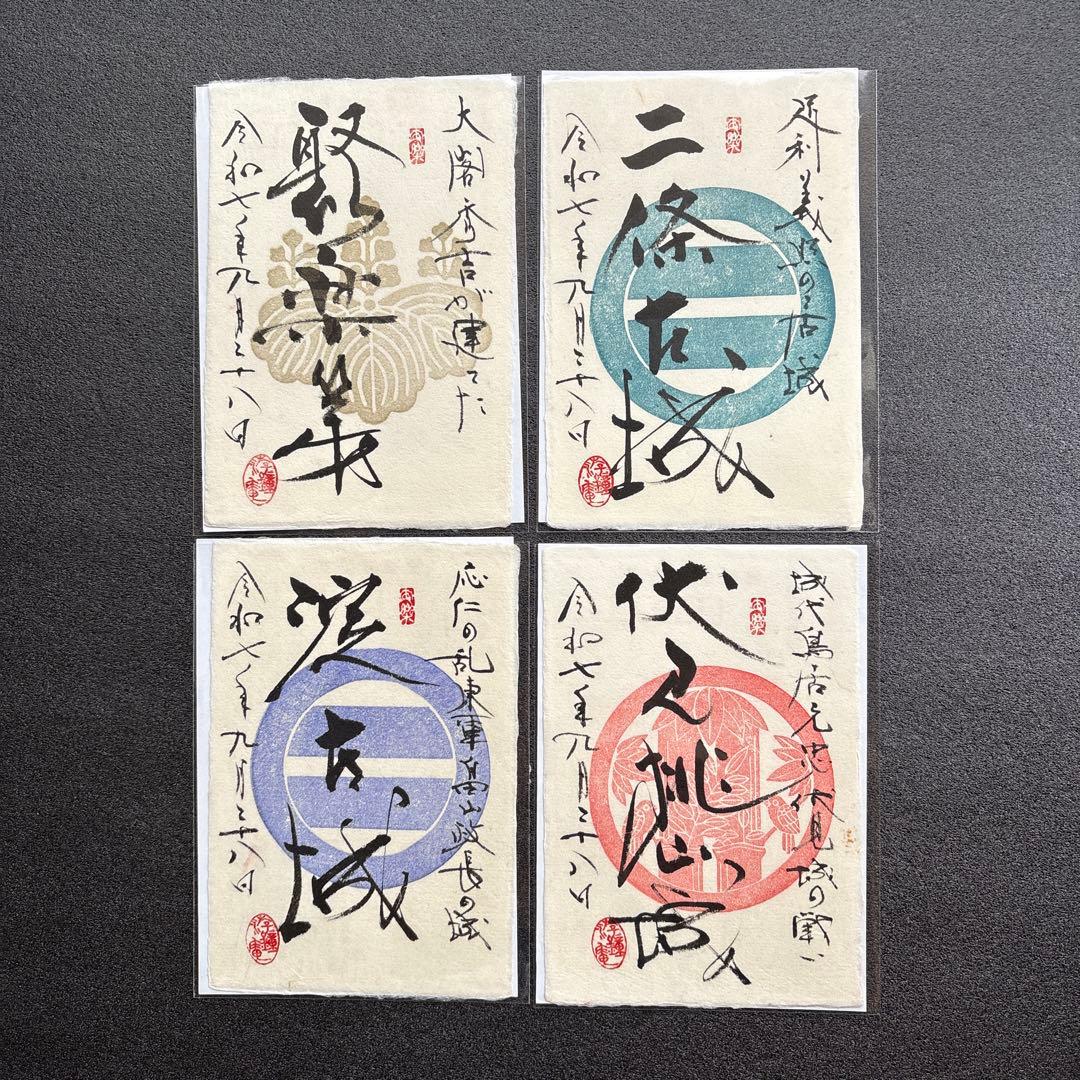 大閤秀吉が建てた
聚楽第
令和七年九月二十八日
足利義昭の居城
二條古城
令和七年九月二十八日
応仁の乱東軍畠山政長の城
淀古城
令和七年九月二十八日
城代鳥居元忠伏見城の戦い
伏見桃山城
令和七年九月二十八日